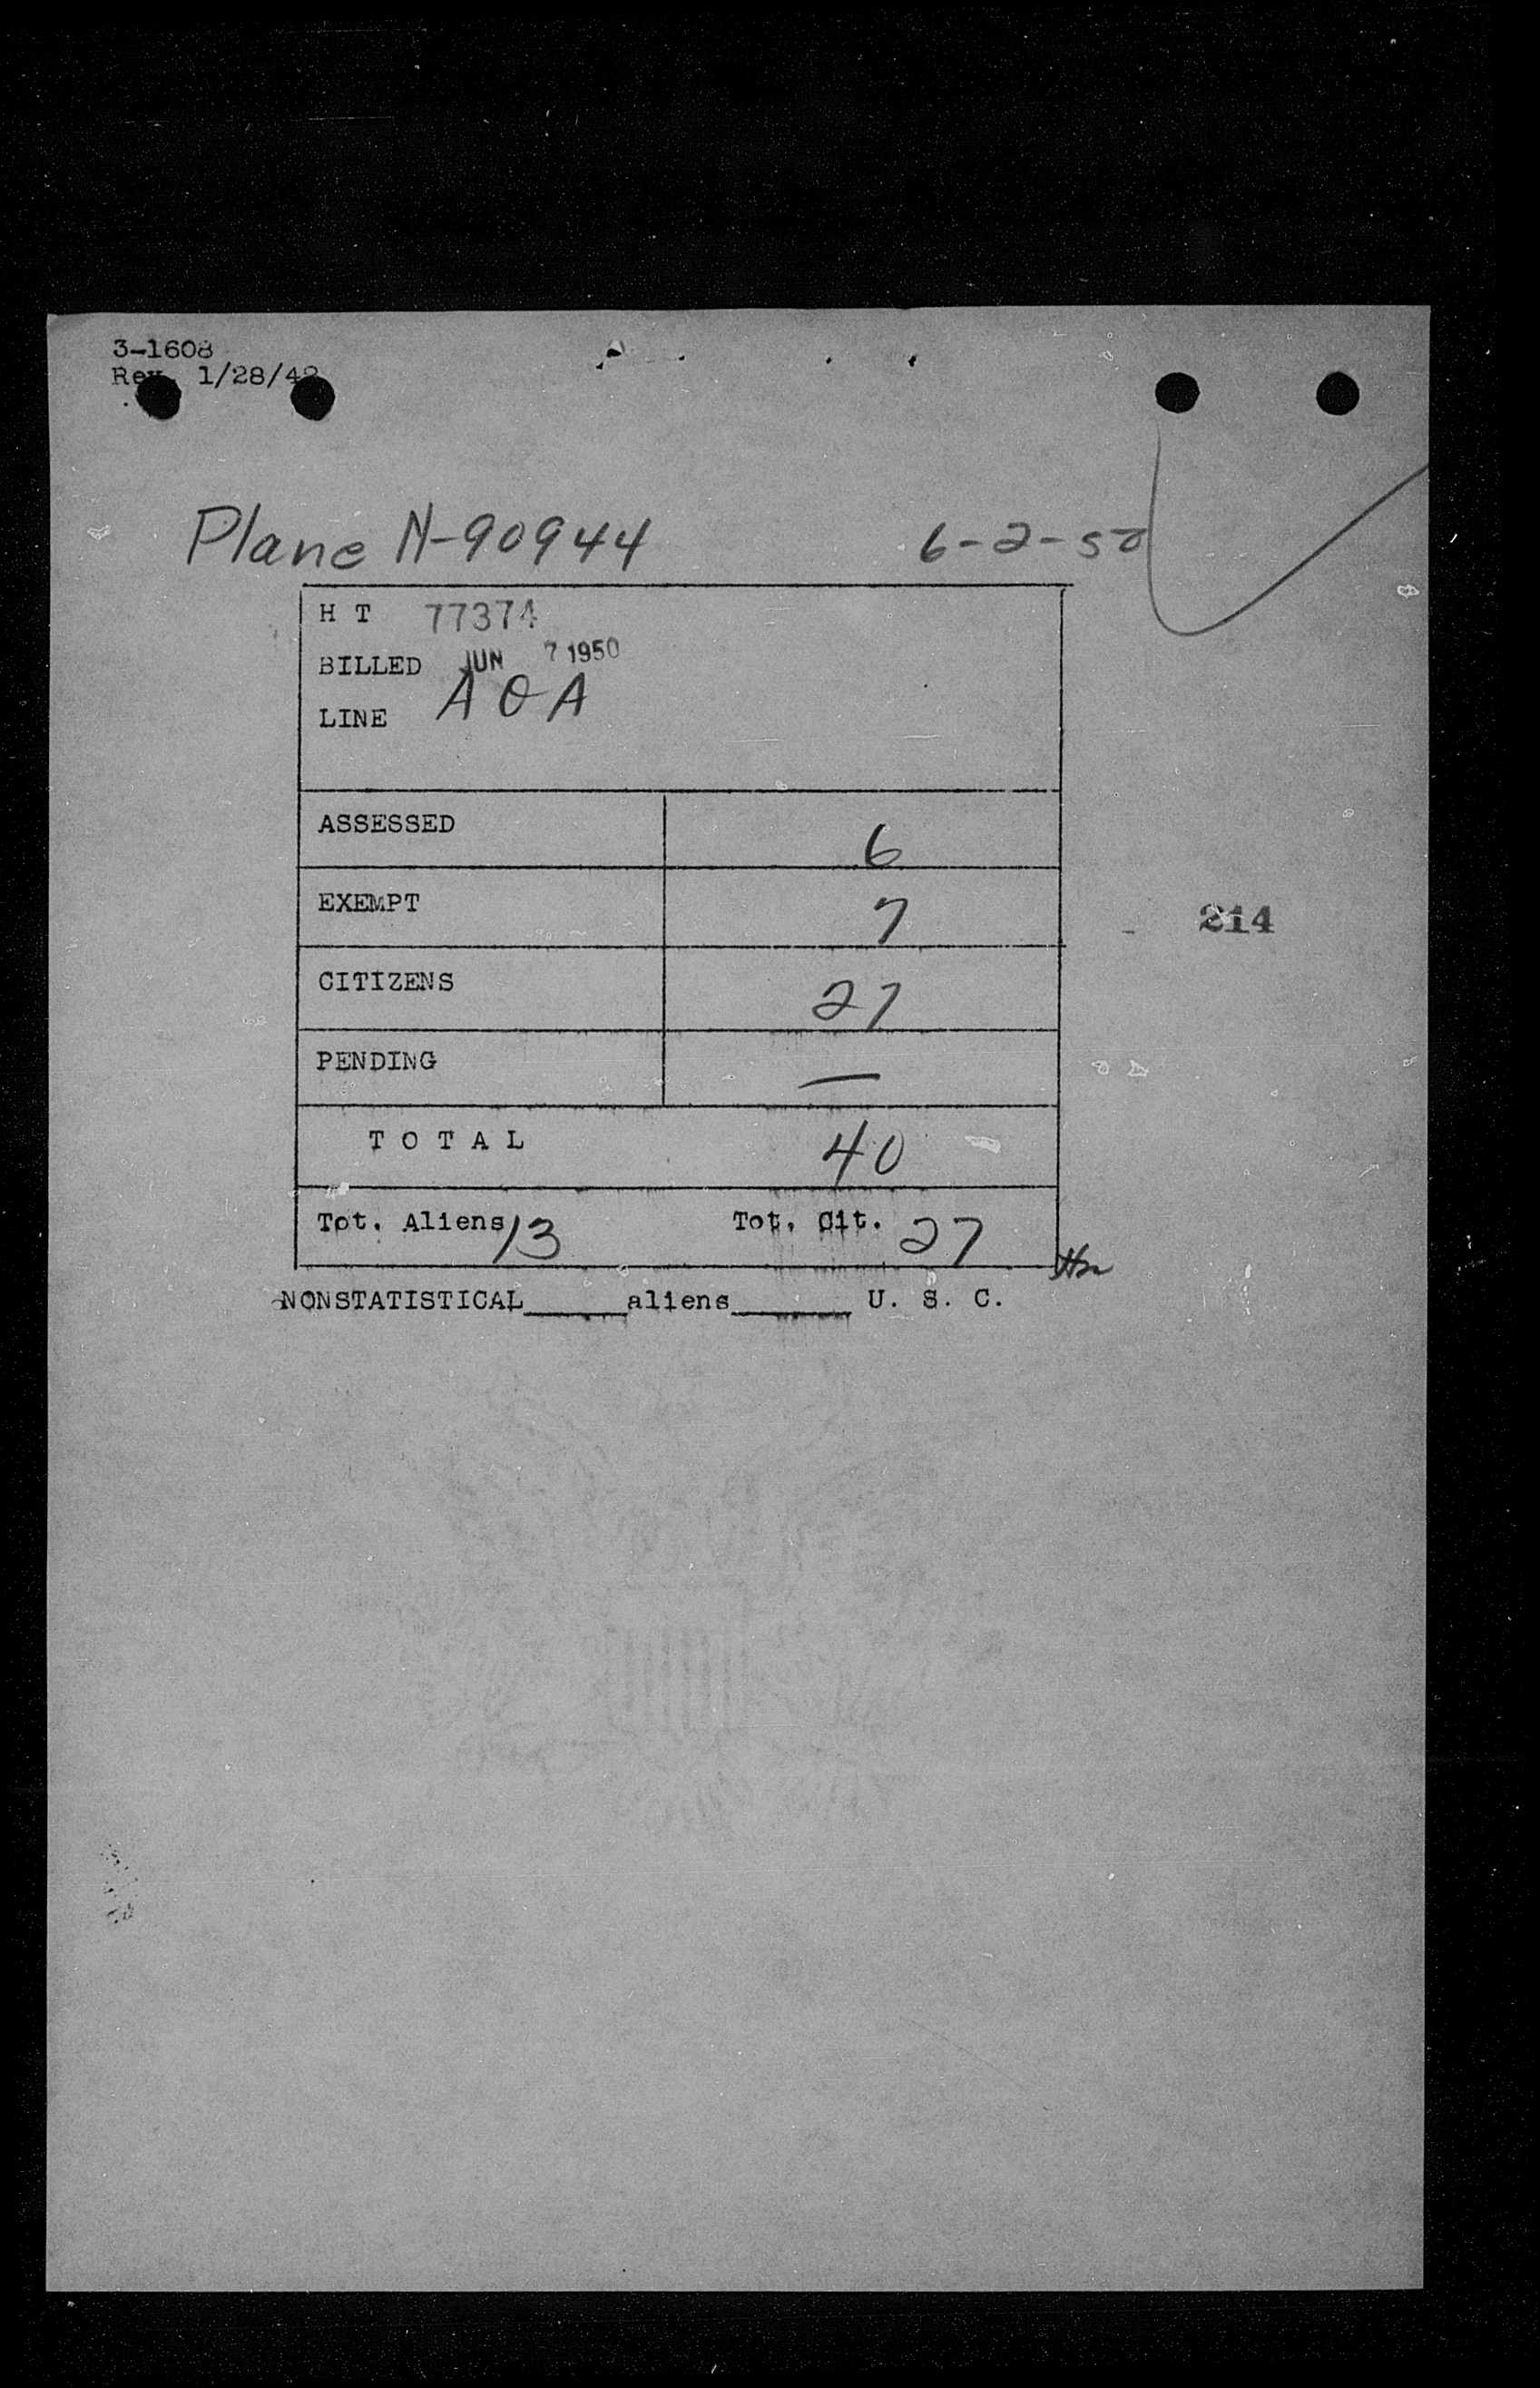 3-1608
Rev. 1/28/48
Plane N-90944 6-2-50
H T 77374
BILLED JUN 7 1950
LINE A O A
ASSESSED 6
EXEMPT 7
214
CITIZENS 27
PENDING —
T O T A L 40
Tot. Aliens 13 Tot. Cit. 27
NONSTATISTICAL______aliens_______ U. S. C.